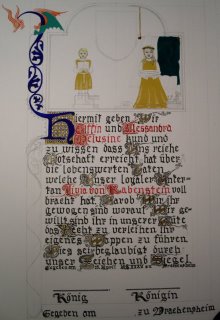 Hiermit geben Wir
und Alessandra
kund und
zu wissen dass Uns reiche
Botschaft erreicht hat über
die lobenswerten Taten
welche Unser loyaler Unter-
tan Livia von Rabenstein voll
bracht hat. Darob Wir ihr
gewogen sind worauf Wir ge-
willt sind ihr in unserer Güte
das Recht zu verleihen ihr
eigenes Wappen zu führen
Dies sei beglaubigt durch
unser Zeichen und Siegel
König Königin
Gegeben am zu Drachenheim